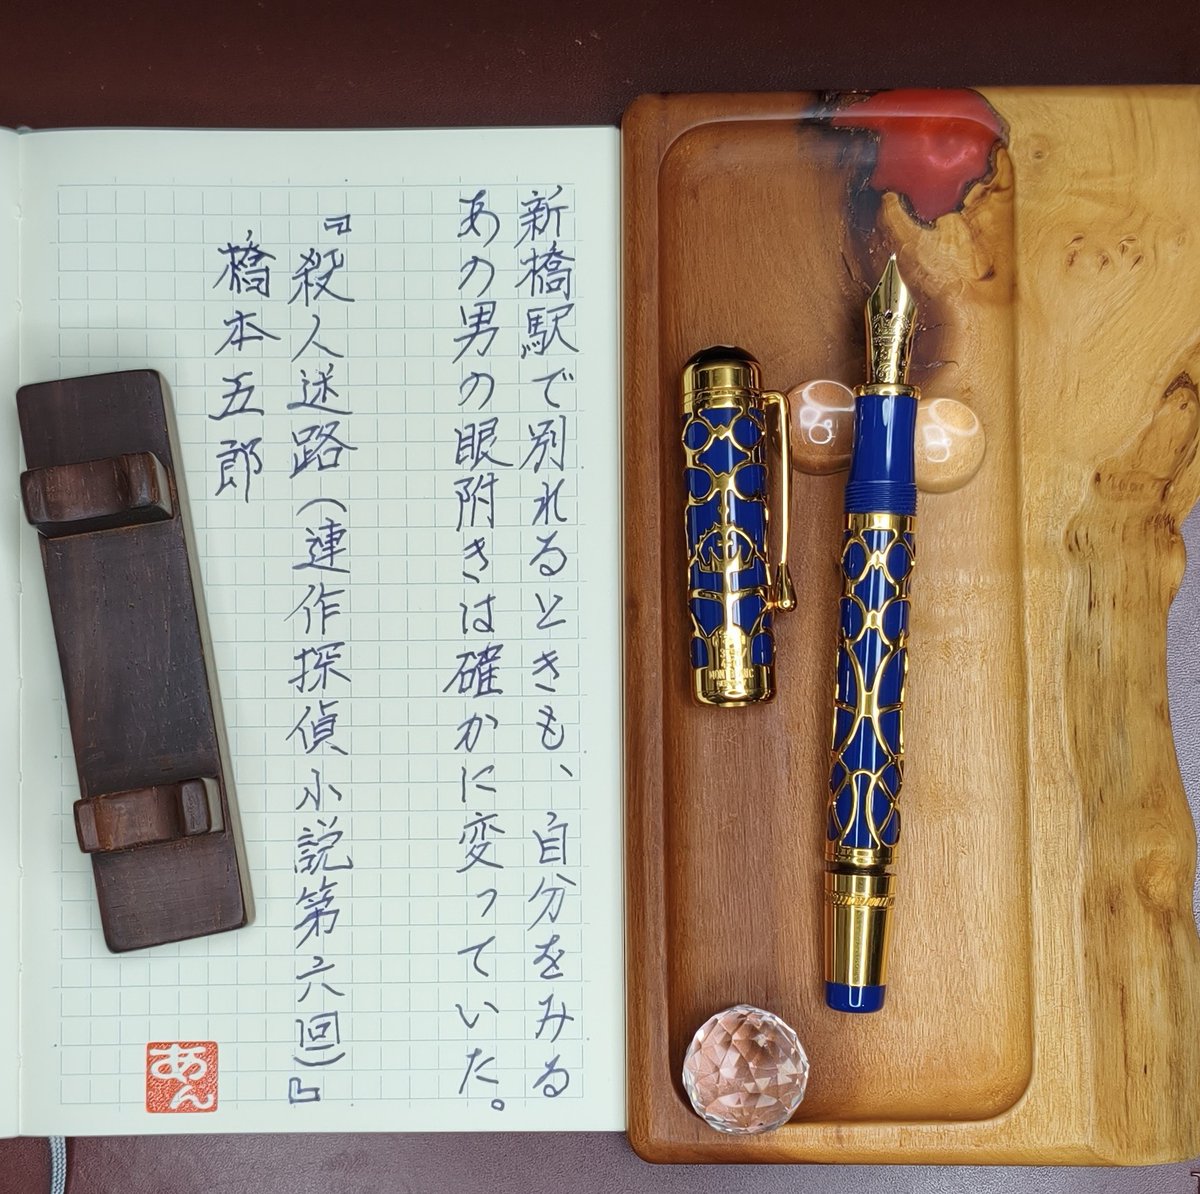 新橋駅で別れるときも、自分をみる
あの男の眼附きは確かに変っていた。
『殺人迷路(連作探偵小説第六回)』
橋本五郎
あん
MONTBLANC